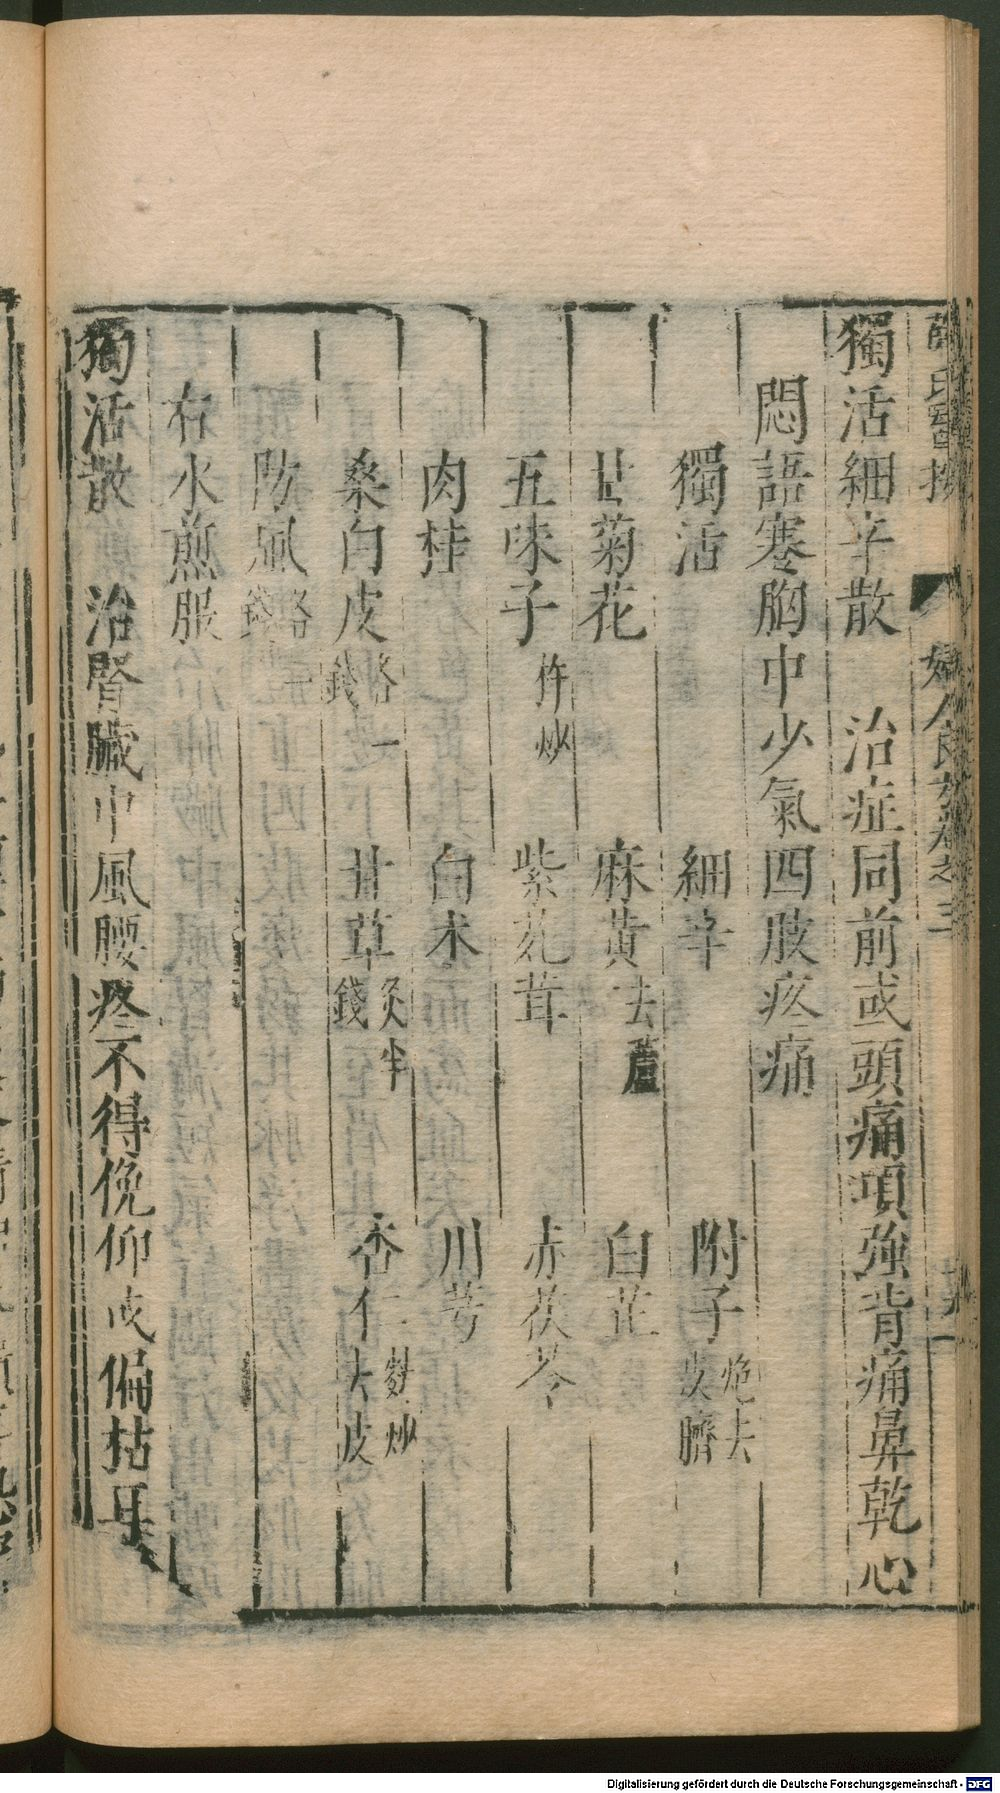 獨活細辛散　治症同前或頭痛項強背痛鼻乾心
悶語蹇胸中少氣四肢疼痛
獨活　細辛　附子炮去皮臍
甘菊花　麻黄去蘆　白芷
五味子杵炒　紫菀茸　赤茯苓
肉桂　白朮　川芎
桑白皮各一錢　甘草炙半錢　杏仁二麩炒去皮
防風各二錢
右水煎服
獨活散　治腎臟中風腰疼不得俛仰或偏枯耳
薛氏醫按　婦人良方卷之三
Digitalisierung gefördert durch die Deutsche Forschungsgemeinschaft - DFG